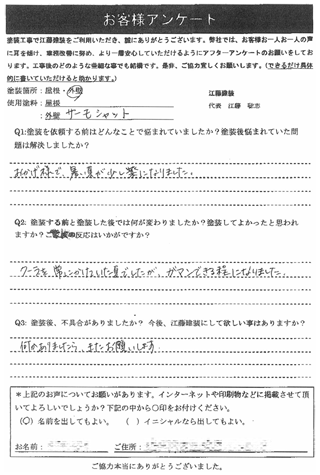 お客様アンケート
塗装工事で江藤建装をご利用いただき、誠にありがとうございます。弊社では、お客様お一人お一人の声
に耳を傾け、業務改善に努め、より一層安心していただけるようにアフターアンケートのお願いをしてお
ります。工事後のどのような些細な事でも結構です。是非、ご協力宜しくお願いします。(できるだけ具体
的に書いていただけると助かります。)
塗装箇所：屋根・外壁
江藤建装
使用塗料：屋根
代表 江藤
：外壁 サーモシャット
Q1:塗装を依頼する前はどんなことで悩まれていましたか？塗装後悩まれていた問
題は解決しましたか？
おかげ様で、暑い夏が少し楽になりました。
Q2: 塗装する前と塗装した後では何が変わりましたか？塗装してよかったと思われ
ますか？ご 反応はいかがですか？
クーラを かけないした夏でしたが、ガマンできる程になりました。
Q3: 塗装後、不具合がありましたか？ 今後、江藤建装にして欲しい事はありますか？
何かありましたら、またお願いします
＊上記のお声についてお願いがあります。インターネットや印刷物などに掲載させて頂
いてよろしいでしょうか？下記の中から○印をお付けください。
(○) 名前を出してもよい。 ( ) イニシャルなら出してもよい。
お名前： ご住所：
ご協力本当にありがとうございました。